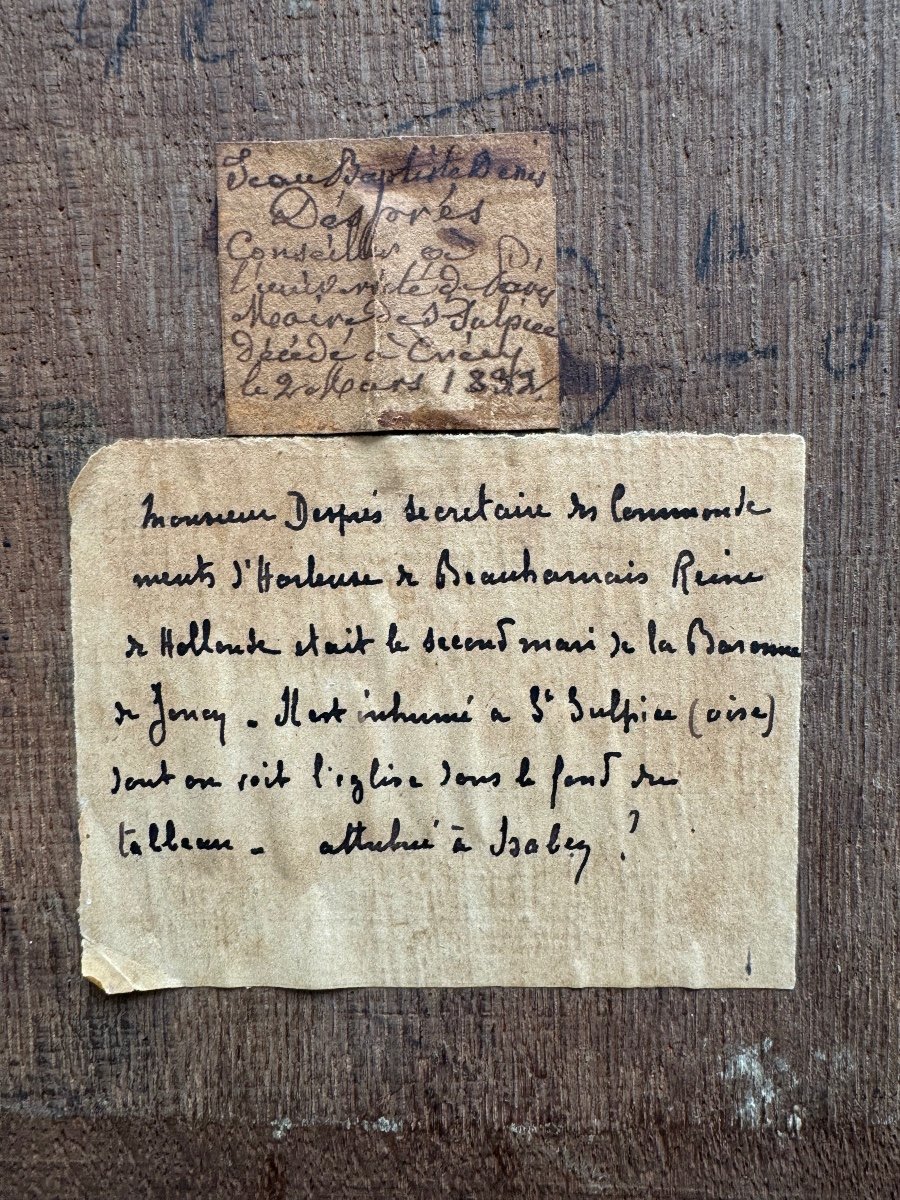 Jean Baptiste Denis
Després
Conseiller de
l'université de Paris
Maire de St Sulpice
décédé à Crécy
le 2 Mars 1832
Monsieur Després secretaire des Commande
ments d'Hortense de Beauharnais Reine
de Hollande etait le second mari de la Baronne
de Joucy - Il est inhumé a St Sulpice (oise)
dont on voit l'eglise dans le fond du
tableau - attribué à Isabey ?